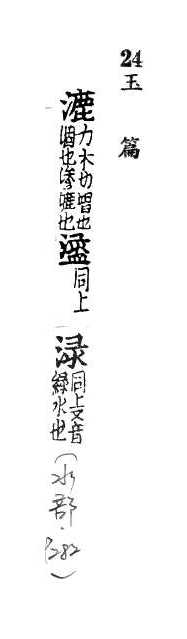 24 玉篇
漉 力木切也涸也滲漉也 盝 同上 渌 同上又音綠水也(水部·282)